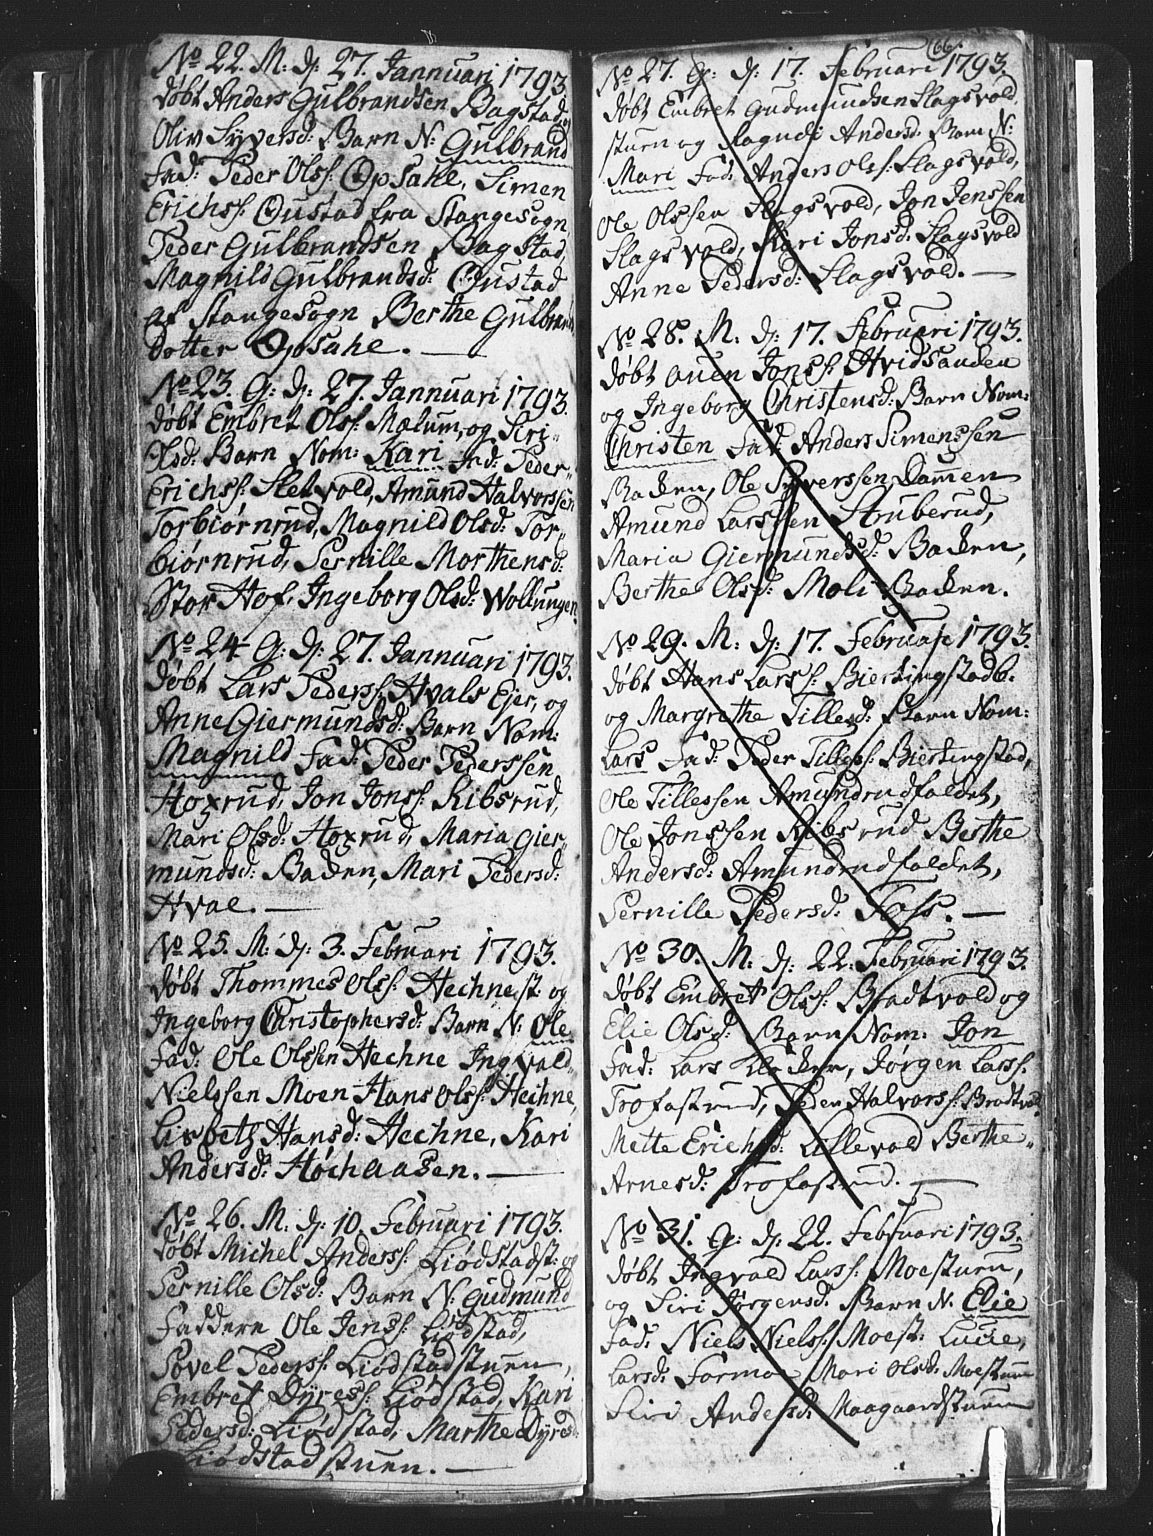 No 22. M: d: 27. Jannuari 1793.
døbt Anders Gulbrandsen Bagstad og
Oliv Syversd: Barn N: Gulbrand
Fad: Peder Ols: Opsahl, Simen
Erichs: Qustad fra Stangesogn
Peder Gulbrandsen Bagstad,
Magnild Gulbrandsd: Qustad
af Stangesogn Berthe Gulbrands
Dotter Opsahl.
No 23. G: d: 27. Jannuari 1793.
døbt Embret Ols: Mælum, og Siri
Olsd: Barn Nom: Kari Fad: Peder
Erichs: Sletvold, Amund Halvorssen
Torbiørnrud, Magnild Olsd: Tor-
biørnrud, Pernille Morthensd:
Stor Hof, Ingeborg Olsd: Wollungen.
No 24 G: d: 27. Jannuari 1793.
døbt Lars Peders: Hvals Ejer, og
Anne Giermundsd: Barn Nom:
Magnild Fad: Peder Pederssen
Hoxrud, Jon Jons: Ribsrud,
Mari Olsd: Hoxrud, Maria Gier-
mundsd: Baden, Mari Pedersd:
Hval.
No 25. M: d: 3. Februari 1793.
døbt Thommes Ols: Hechnest: og
Ingeborg Christophersd: Barn N: Ole
Fad: Ole Olssen Hechne Ingvald
Nielssen Moen Hans Ols: Hechne,
Lisbeth Hansd: Hechne, Kari
Andersd: Høchaasen.
No 26. M. d: 10. Februari 1793.
døbt Michel Anders: Liødstadst: og
Pernille Olsd: Barn N: Gudmund
Faddere Ole Jens: Liødstad,
Povel Peders: Liødstadstuen,
Embret Dyres: Liødstad, Kari
Pedersd: Liødstad, Marthe Dyresd:
Liødstadstuen.
66.
No 27. G: d: 17. Februari 1793.
døbt Embret Gudmundsen Slagsvold
stuen og Ragndi Andersd: Barn N:
Mari Fad: Anders Ols: Slagsvold,
Ole Olssen Slagsvold, Jon Jenssen
Slagsvold, Kari Jonsd: Slagsvold
Anne Pedersd: Slagsvold.
No 28. M. d: 17. Februari 1793.
døbt Auen Jons: Hvidsanden
og Ingeborg Christensd: Barn Nom:
Christen Fad: Anders Simenssen
Baden, Ole Syverssen Dammen
Amund Larssen Struberud,
Maria Giermundsd: Baden,
Berthe Olsd: Moli Baden.
No 29. M. d: 17. Februari 1793.
døbt Hans Lars: Biertingstadb.
og Margrethe Tillesd: Barn Nom:
Lars Fad: Peder Tilless: Biertingstad,
Ole Tillessen Amundrudfaldet,
Ole Jonssen Ribsrud Berthe
Andersd: Amundrudfaldet,
Pernille Pedersd: Foss.
No 30. M. d: 22. Februari 1793.
døbt Embret Ols: Bradtvold og
Elie Olsd: Barn Nom: Jon
Fad: Lars Kloden, Jørgen Lars:
Trofastrud, Peder Halvors: Bradtvol
Mette Erichsd: Lillevold Berthe
Arnesd: Trofastrud.
No 31. G: d: 22. Februari 1793.
døbt Ingvald Lars: Moestuen,
og Siri Jørgensd: Barn N. Elie
Fad: Niels Niels: Moest: Lucie
Larsd: Formoe Mari Olsd: Moestuen
Siri Andersd: Maagaardstuen